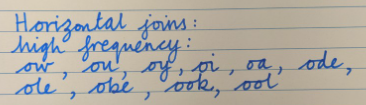 Horizontal joins:
high frequency:
ow, ou, oy, oi, oa, ode,
ole, obe, ook, ool